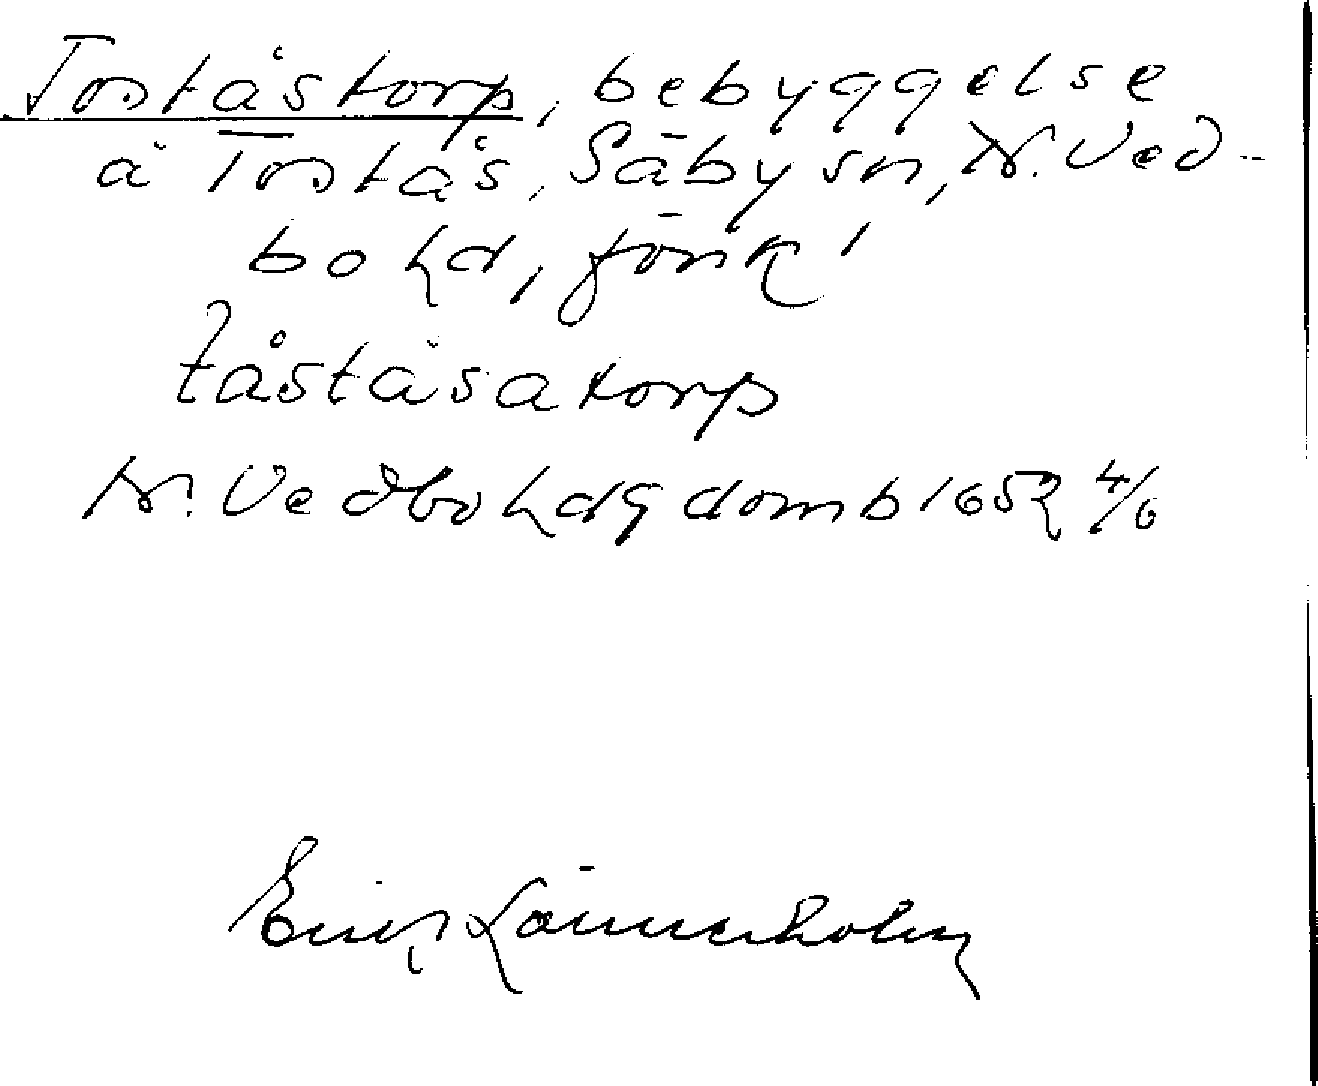 Toståstorp, bebyggelse
å Tostås, Säby sn, N. Ved-
bo hd, Jönk'
tåståsatorp
N. Vedbo hds domb 1652 4/6
Erik Lännerholm